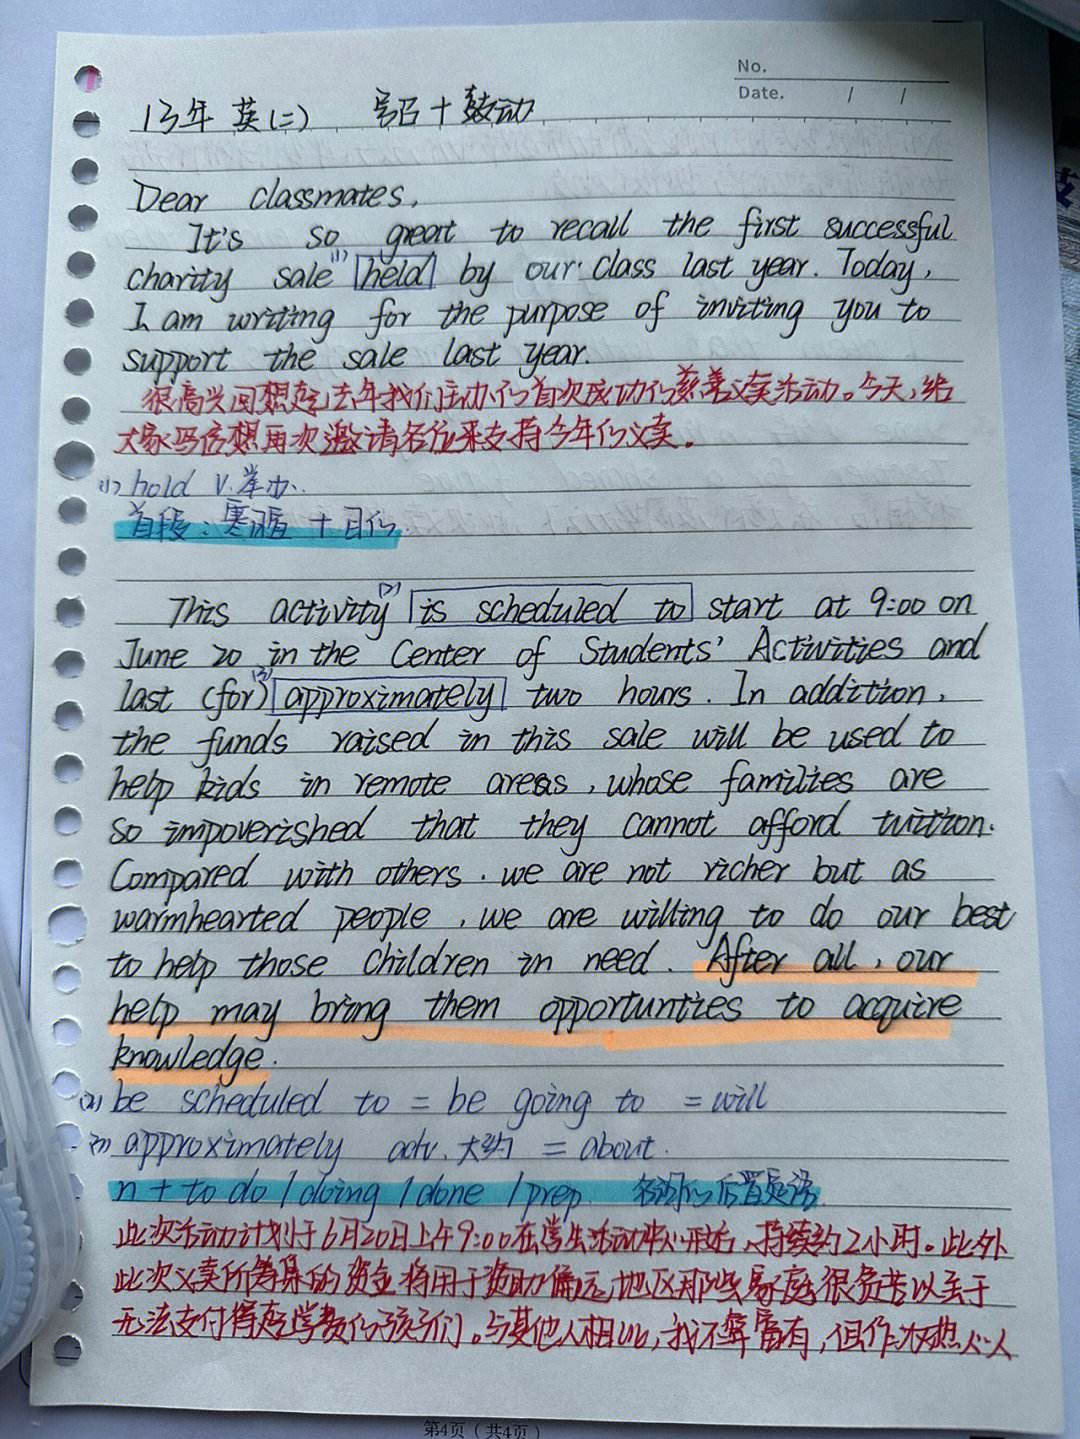 No.
Date. / /
13年 英(二) 号召+鼓动
Dear classmates,
It's so great to recall the first successful
charity sale (1) held by our class last year. Today,
I am writing for the purpose of inviting you to
support the sale last year.
很高兴回想起去年我们主办的首次成功的慈善义卖活动。今天,给
大家写信想再次邀请各位来支持今年的义卖。
(1) hold v. 举办.
首段:寒暄+目的
This activity (2) is scheduled to start at 9:00 on
June 20 in the Center of Students' Activities and
last (for) (3) approximately two hours. In addition,
the funds raised in this sale will be used to
help kids in remote areas, whose families are
so impoverished that they cannot afford tuition.
Compared with others, we are not richer but as
warmhearted people, we are willing to do our best
to help those children in need. After all, our
help may bring them opportunties to acquire
knowledge.
(2) be scheduled to = be going to = will
(3) approximately adv. 大约 = about.
n + to do / doing / done / prep. 名词的后置定语.
此次活动计划于6月20日上午9:00在学生活动中心开始,持续约2小时。此外
此次义卖所筹集的资金将用于资助偏远地区那些家庭很贫苦以至于
无法支付得起学费的孩子们。与其他人相比,我不算富有,但作为热心人
第4页(共4页)